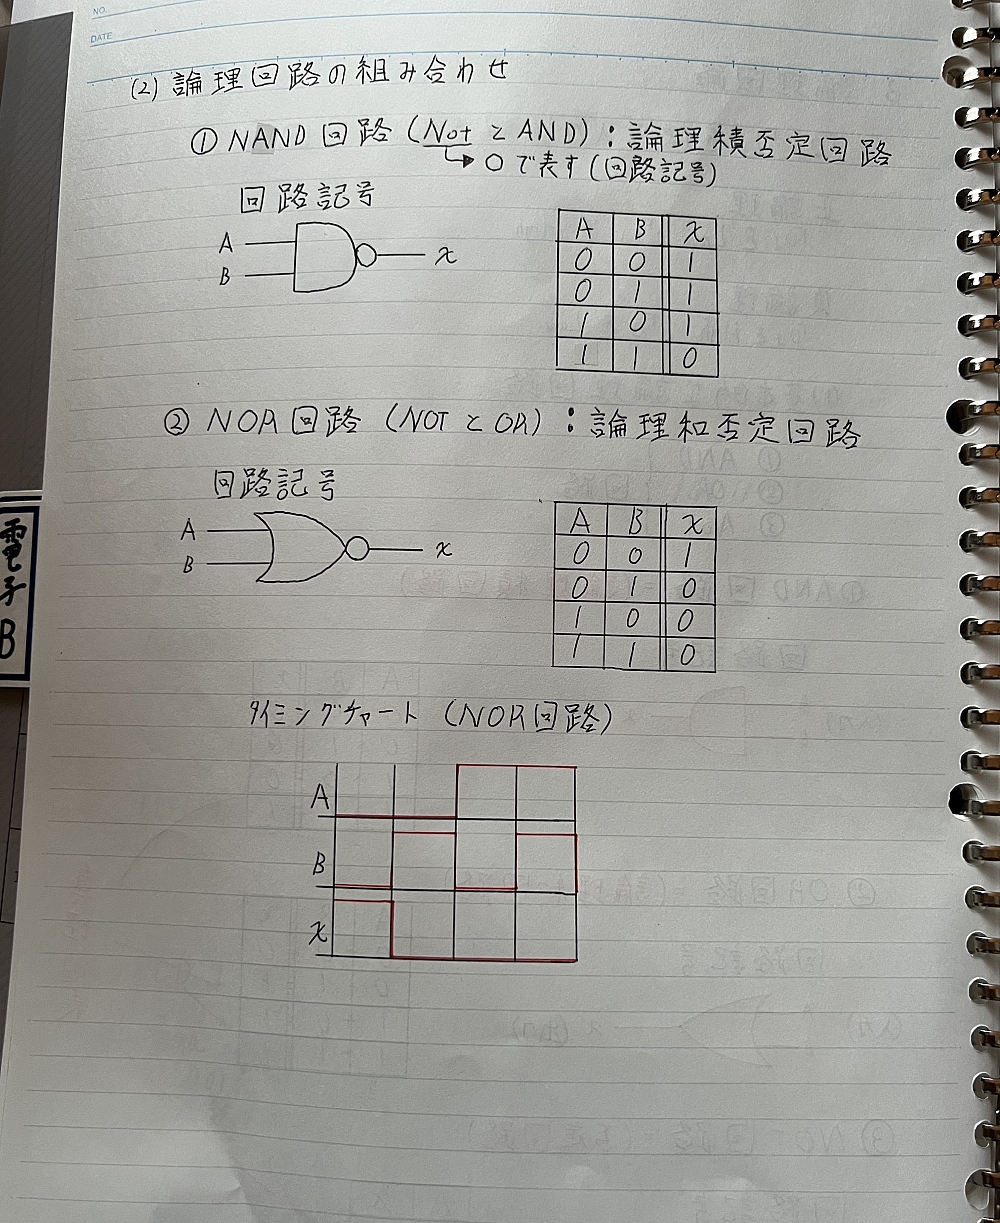 NO.
DATE
(2) 論理回路の組み合わせ
① NAND回路 (Not と AND) : 論理積否定回路
○で表す (回路記号)
回路記号
A
B
x
A B x
0 0 1
0 1 1
1 0 1
1 1 0
② NOR回路 (NOT と OR) : 論理和否定回路
回路記号
A
B
x
A B x
0 0 1
0 1 0
1 0 0
1 1 0
電子B
タイミングチャート (NOR回路)
A
B
x